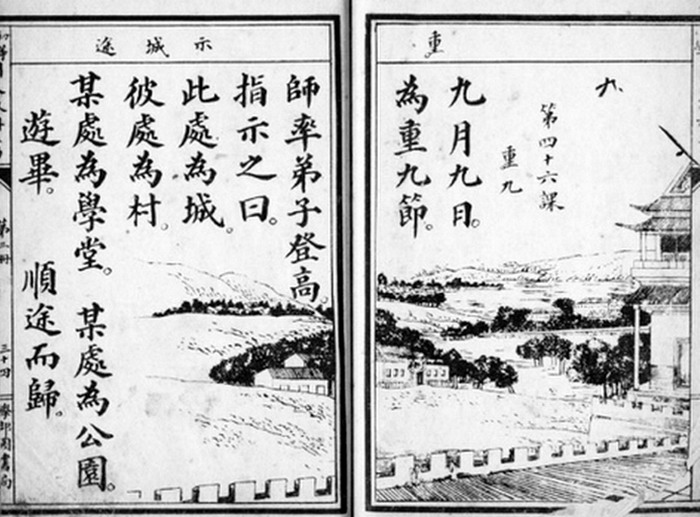 重
九
第四十六課
重九
九月九日。
為重九節。
示城途
師率弟子登高。
指示之曰。
此處為城。
彼處為村。
某處為學堂。某處為公園。
遊畢。順途而歸。
第二冊
三十四